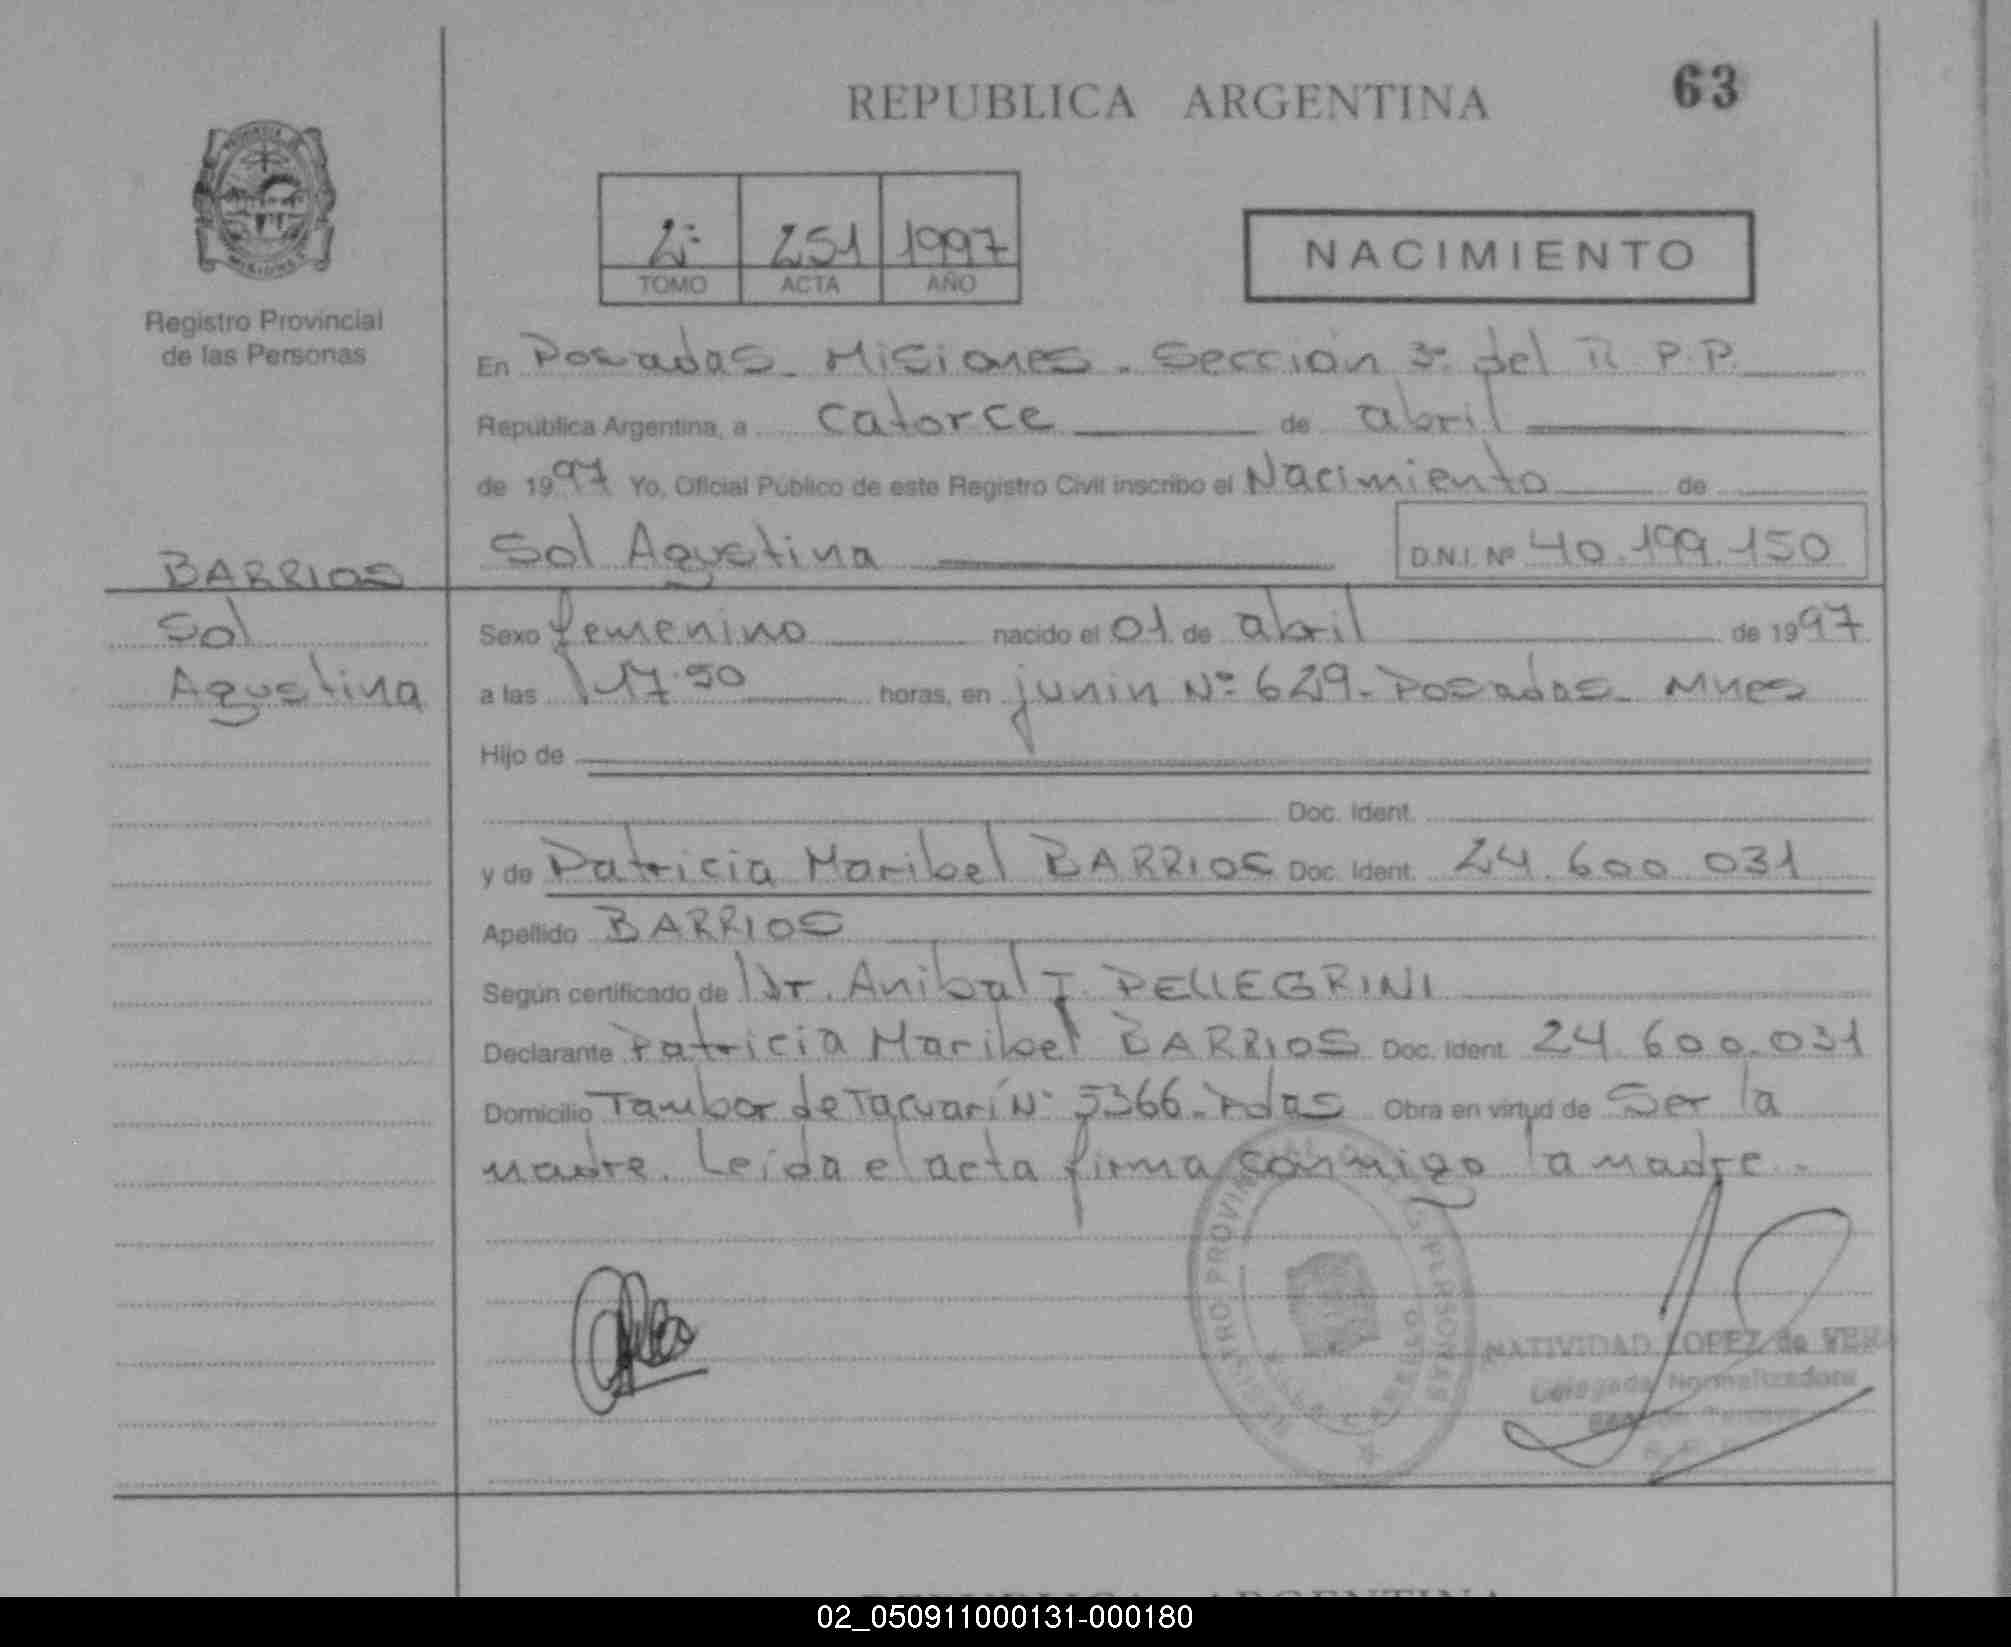 REPUBLICA ARGENTINA
63
2º 251 1997
TOMO ACTA AÑO
NACIMIENTO
Registro Provincial
de las Personas
En Posadas - Misiones - Sección 3º del R.P.P.
República Argentina, a catorce de abril
de 1997 Yo, Oficial Público de este Registro Civil inscribo el Nacimiento de
Sol Agustina D.N.I. Nº 40.199.150
BARRIOS
Sol
Agustina
Sexo femenino nacido el 01 de abril de 1997
a las 17.50 horas, en junin Nº 629 - Posadas - Mnes
Hijo de
Doc. Ident.
y de Patricia Maribel BARRIOS Doc. Ident. 24.600.031
Apellido BARRIOS
Según certificado de Dr. Anibal J. PELLEGRINI
Declarante Patricia Maribel BARRIOS Doc. Ident. 24.600.031
Domicilio Tambor de Tacuarí Nº 5366 - Pdas Obra en virtud de Ser la
madre. Leída el acta firma conmigo la madre.-
NATIVIDAD LOPEZ de
Delegada Normalizadora
02_050911000131-000180